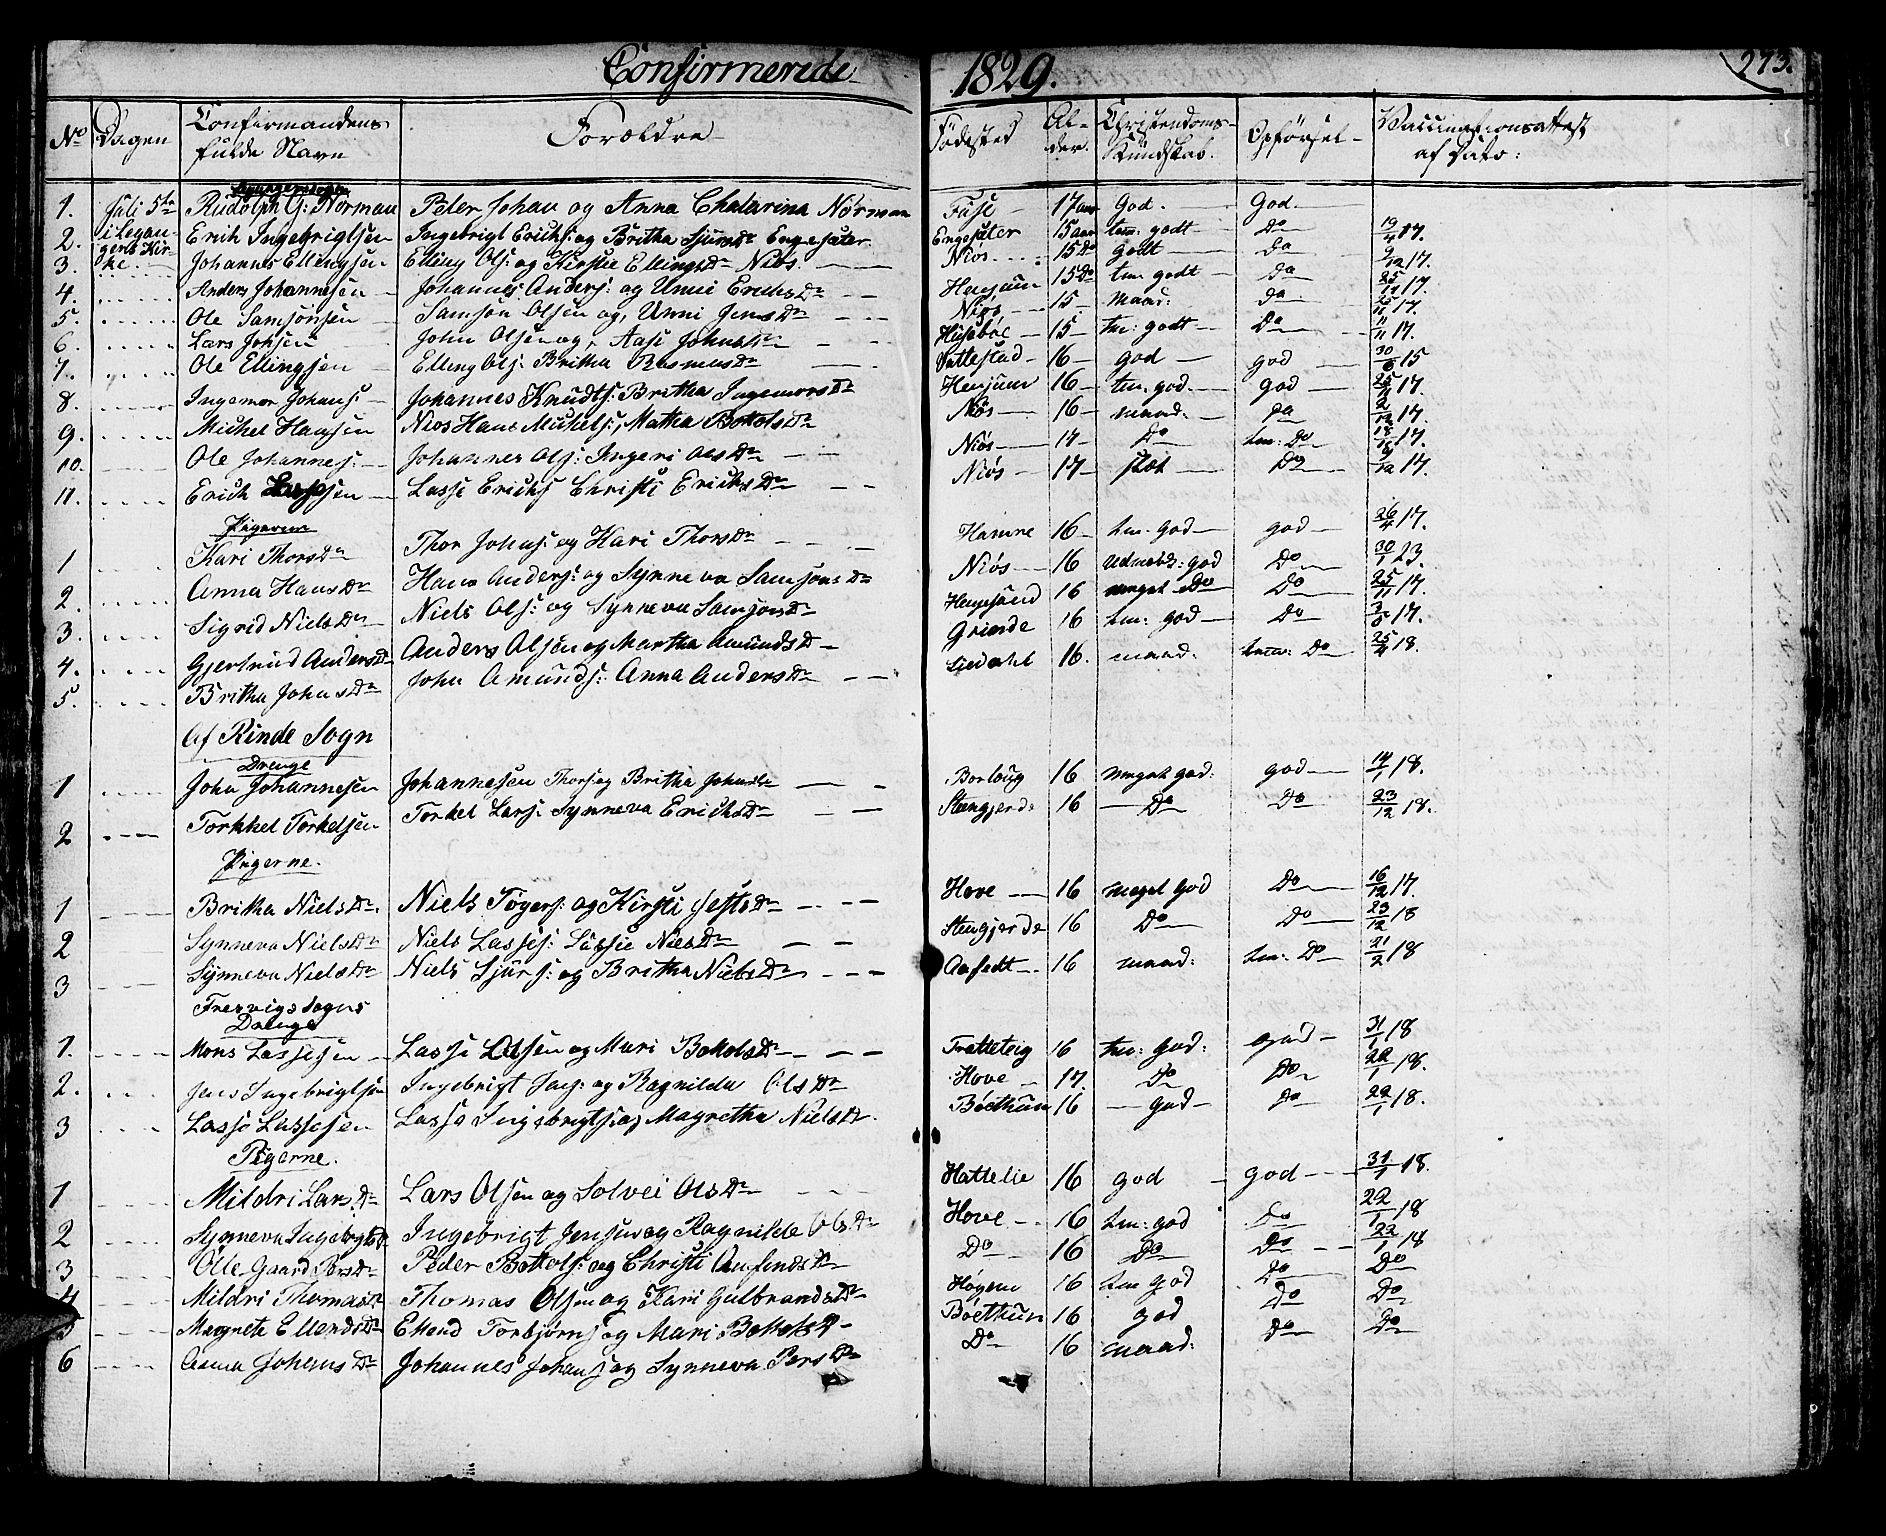 Confirmerede 1829. 273.
No Dagen Confirmandens fulde Navn Forældre Fødested Alder. Christendoms-Kundskab. Opførsel Vaccinationsattest af Dato:
1. Juli 5te Rudolph G: Norman Peter Johan og Anna Chatarina Nørman Fuse 17 aar God. God.
2. i Leganger Kir- Erich Ingebrigtsen Ingebrigt Erichs: og Britha Sjursdr Engesæter Engesæter 15 aar tem: godt Do 19/4 17.
3. ke. Johannes Ellingsen Elling Ols: og Kirstie Ellingsdr Niøs. Niøs 15 Do godt Do 2/12 17.
4. Anders Johannesen Johannes Anders: og Unni Erichsdr Henjum 15 Do tm: godt Do 25/11 17.
5. Ole Samsonsen Samson Olsen og, Unni Jensdr Niøs 15 maad: Do 25/11 17.
6. Lars Johsen John Olsen og, Aase Johnsdr Husebøe 15 tm: godt Do 11/11 17.
7. Ole Ellingsen Elling Ols: Britha Rasmusdr 16 god god 30/6 15
8. Ingemor Johans: Johannes Knudts: Britha Ingemorsdr Henjum 16 tm: god god 25/11 17.
9. Michel Hansen Niøs Hans Michels: Martha Bottolsdr Niøs 16 maad: Do 2/12 17.
10. Ole Johannes: Johannes Ols: Ingeri Olsdr Niøs 17 Do tm: Do 18/12 17.
11. Erich Lassesen Lasse Erichs Christi Erichsdr Niøs 17 slet Do 17.
Pigerne
1 Kari Thorsdr Thor Johns: og Kari Thorsdr Hamre 16 tm: god god 26/4 17.
2. Anna Hansdr Hans Anders: og Synneva Samsonsdr Niøs 16 udmærk: god Do 30/1 23.
3. Sigrid Nielsdr Niels Ols: og Synneva Samsonsdr 16 meget Do Do 25/11 17.
4. Gjertrud Andersdr Anders Olsen og Martha Amundsdr Grinde 16 tm: god Do 17.
5. Britha Johnsdr John Amunds: Anna Andersdr 16. maad: tm: Do 25/4 18.
Af Rinde Sogn
Drenge
1 John Johannesen Johannesen Thors og Britha Johnsdr Borlaug 16 meget god: god 14/1 18.
2 Torkkel Torkelsen Torkel Lars: Synneva Erichsdr Steengjerde 16 Do Do 23/12 18.
Pigerne.
1 Britha Nielsdr. Niels Tøgers: og Kirsti Jestsdr Hove 16 meget god Do 16/12 17.
2 Synneva Nielsdr Niels Lasses: Lussie Nielsdr Stengjerde 16 Do Do 23/12 18
3 Synneva Nielsdr Niels Sjurs: og Britha Nielsdr Aafedt 16 maad: tm: Do 21/2 18
Fresvigs Sogns
Drenge
1. Mons Lassesen Lasse Olsen og Mari Bottolsdr Tratteteig 16 tm: god: god 31/1 18
2. Jens Ingebrigtsen Ingebrigt Jens: og Ragnilda Olsdr Hove 17. Do Do 22/1 18.
3 Lasse Lassesen Lasse Ingebrigts: og Magretha Nielsdr. Bøethun 16 god Do 22/1 18.
Pigerne.
1 Mildri Larsdr Lars Olsen og Solvei Olsdr Hattelie 16 god god 31/1 18.
2 Synneva Ingebrgtsdr Ingebrigt Jensen og Ragnilde Olsdr Hove 16 tm: god Do 22/1 18
3 Olle Gaard Persdr Peder Bottols: og Christi Aufindsdr Do 16 Do Do 22/1 18
4 Mildri Thomasdr Thomas Olsen og Kari Gulbrandsdr Høgene 16 tm god Do Do
5 Magnete Ellendsdr Ellend Torbjørns og Mari Bottolsdr Bøethun 16 god Do Do
6 Anna Johansdr Johannes Johans og Synneva Persdr Do 16 maad: Do Do